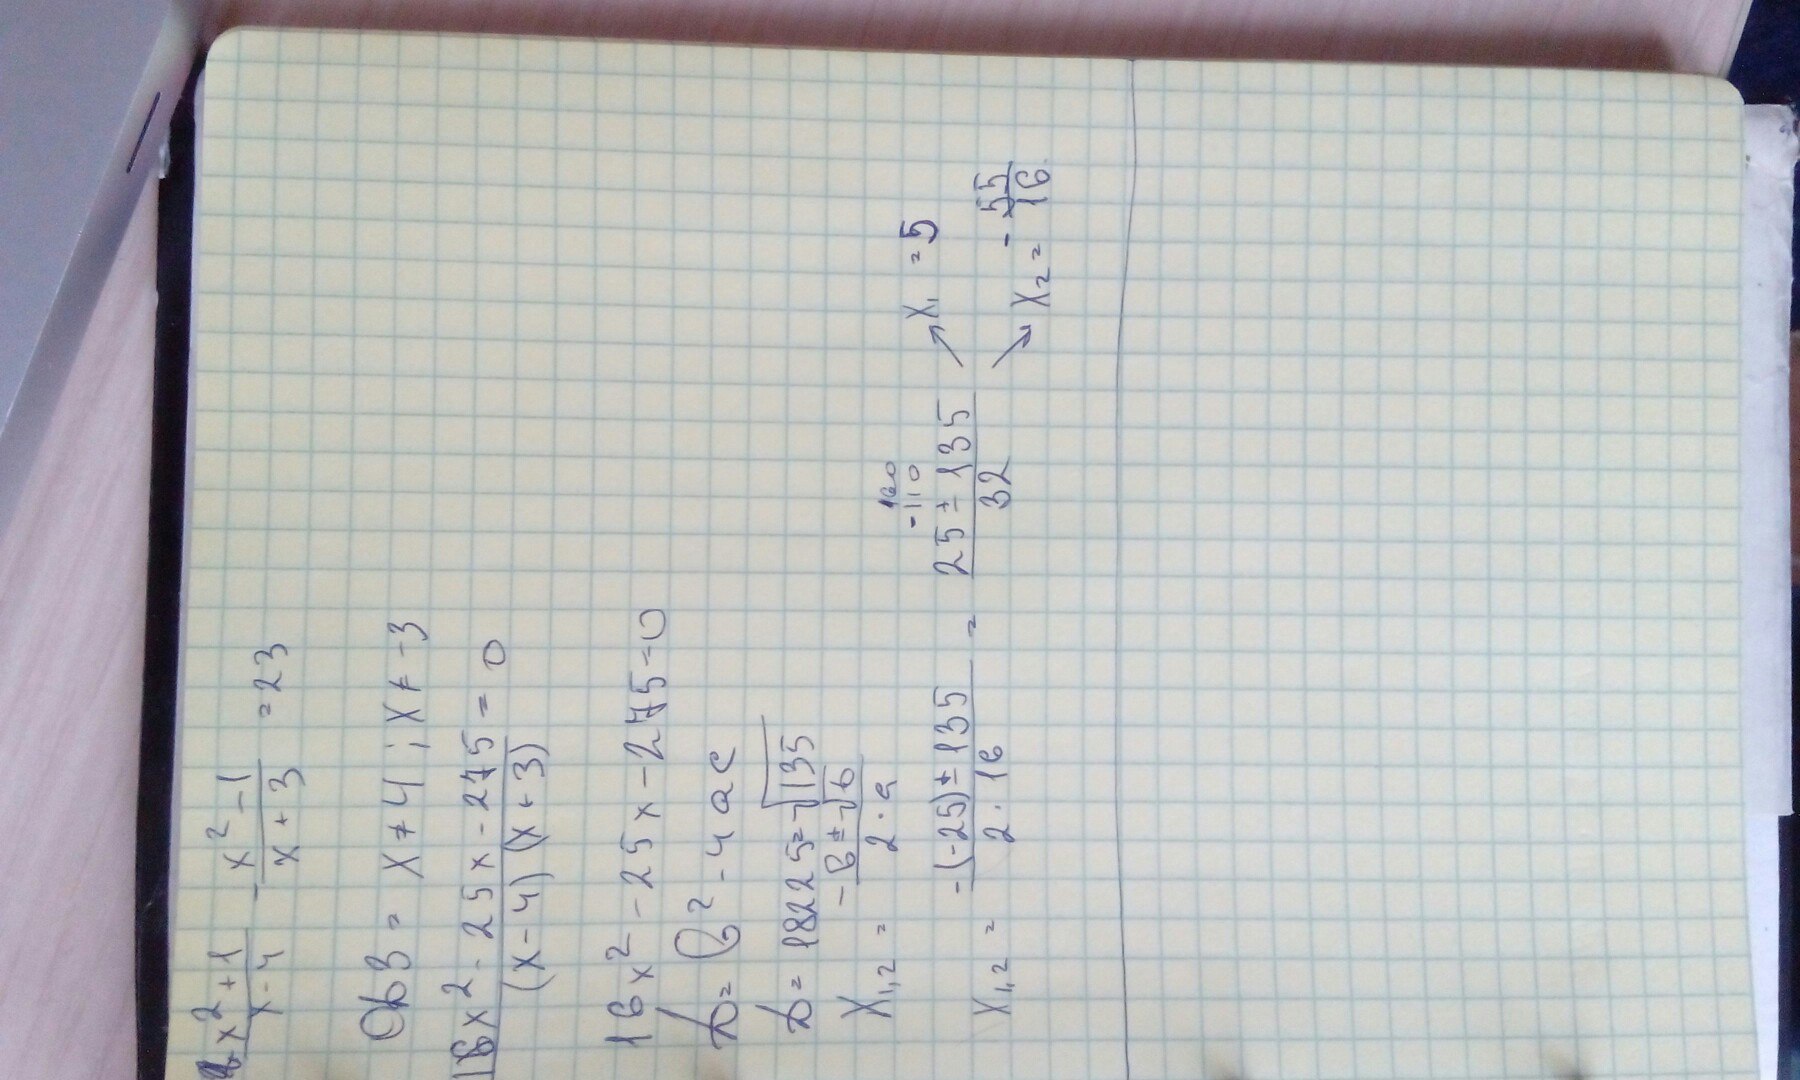 x²+1/x-4 - x²-1/x+3 = 23
Обз = x ≠ 4 ; x ≠ -3
16x² - 25x - 275/(x-4)(x+3) = 0
16x² - 25x - 275 = 0
D = b² - 4ac
D = 18225 = √135
x₁,₂ = -b ± √b/2·a
160
-110
x₁,₂ = -(-25) ± 135/2·16 = 25 ± 135/32
x₁ = 5
x₂ = -55/16